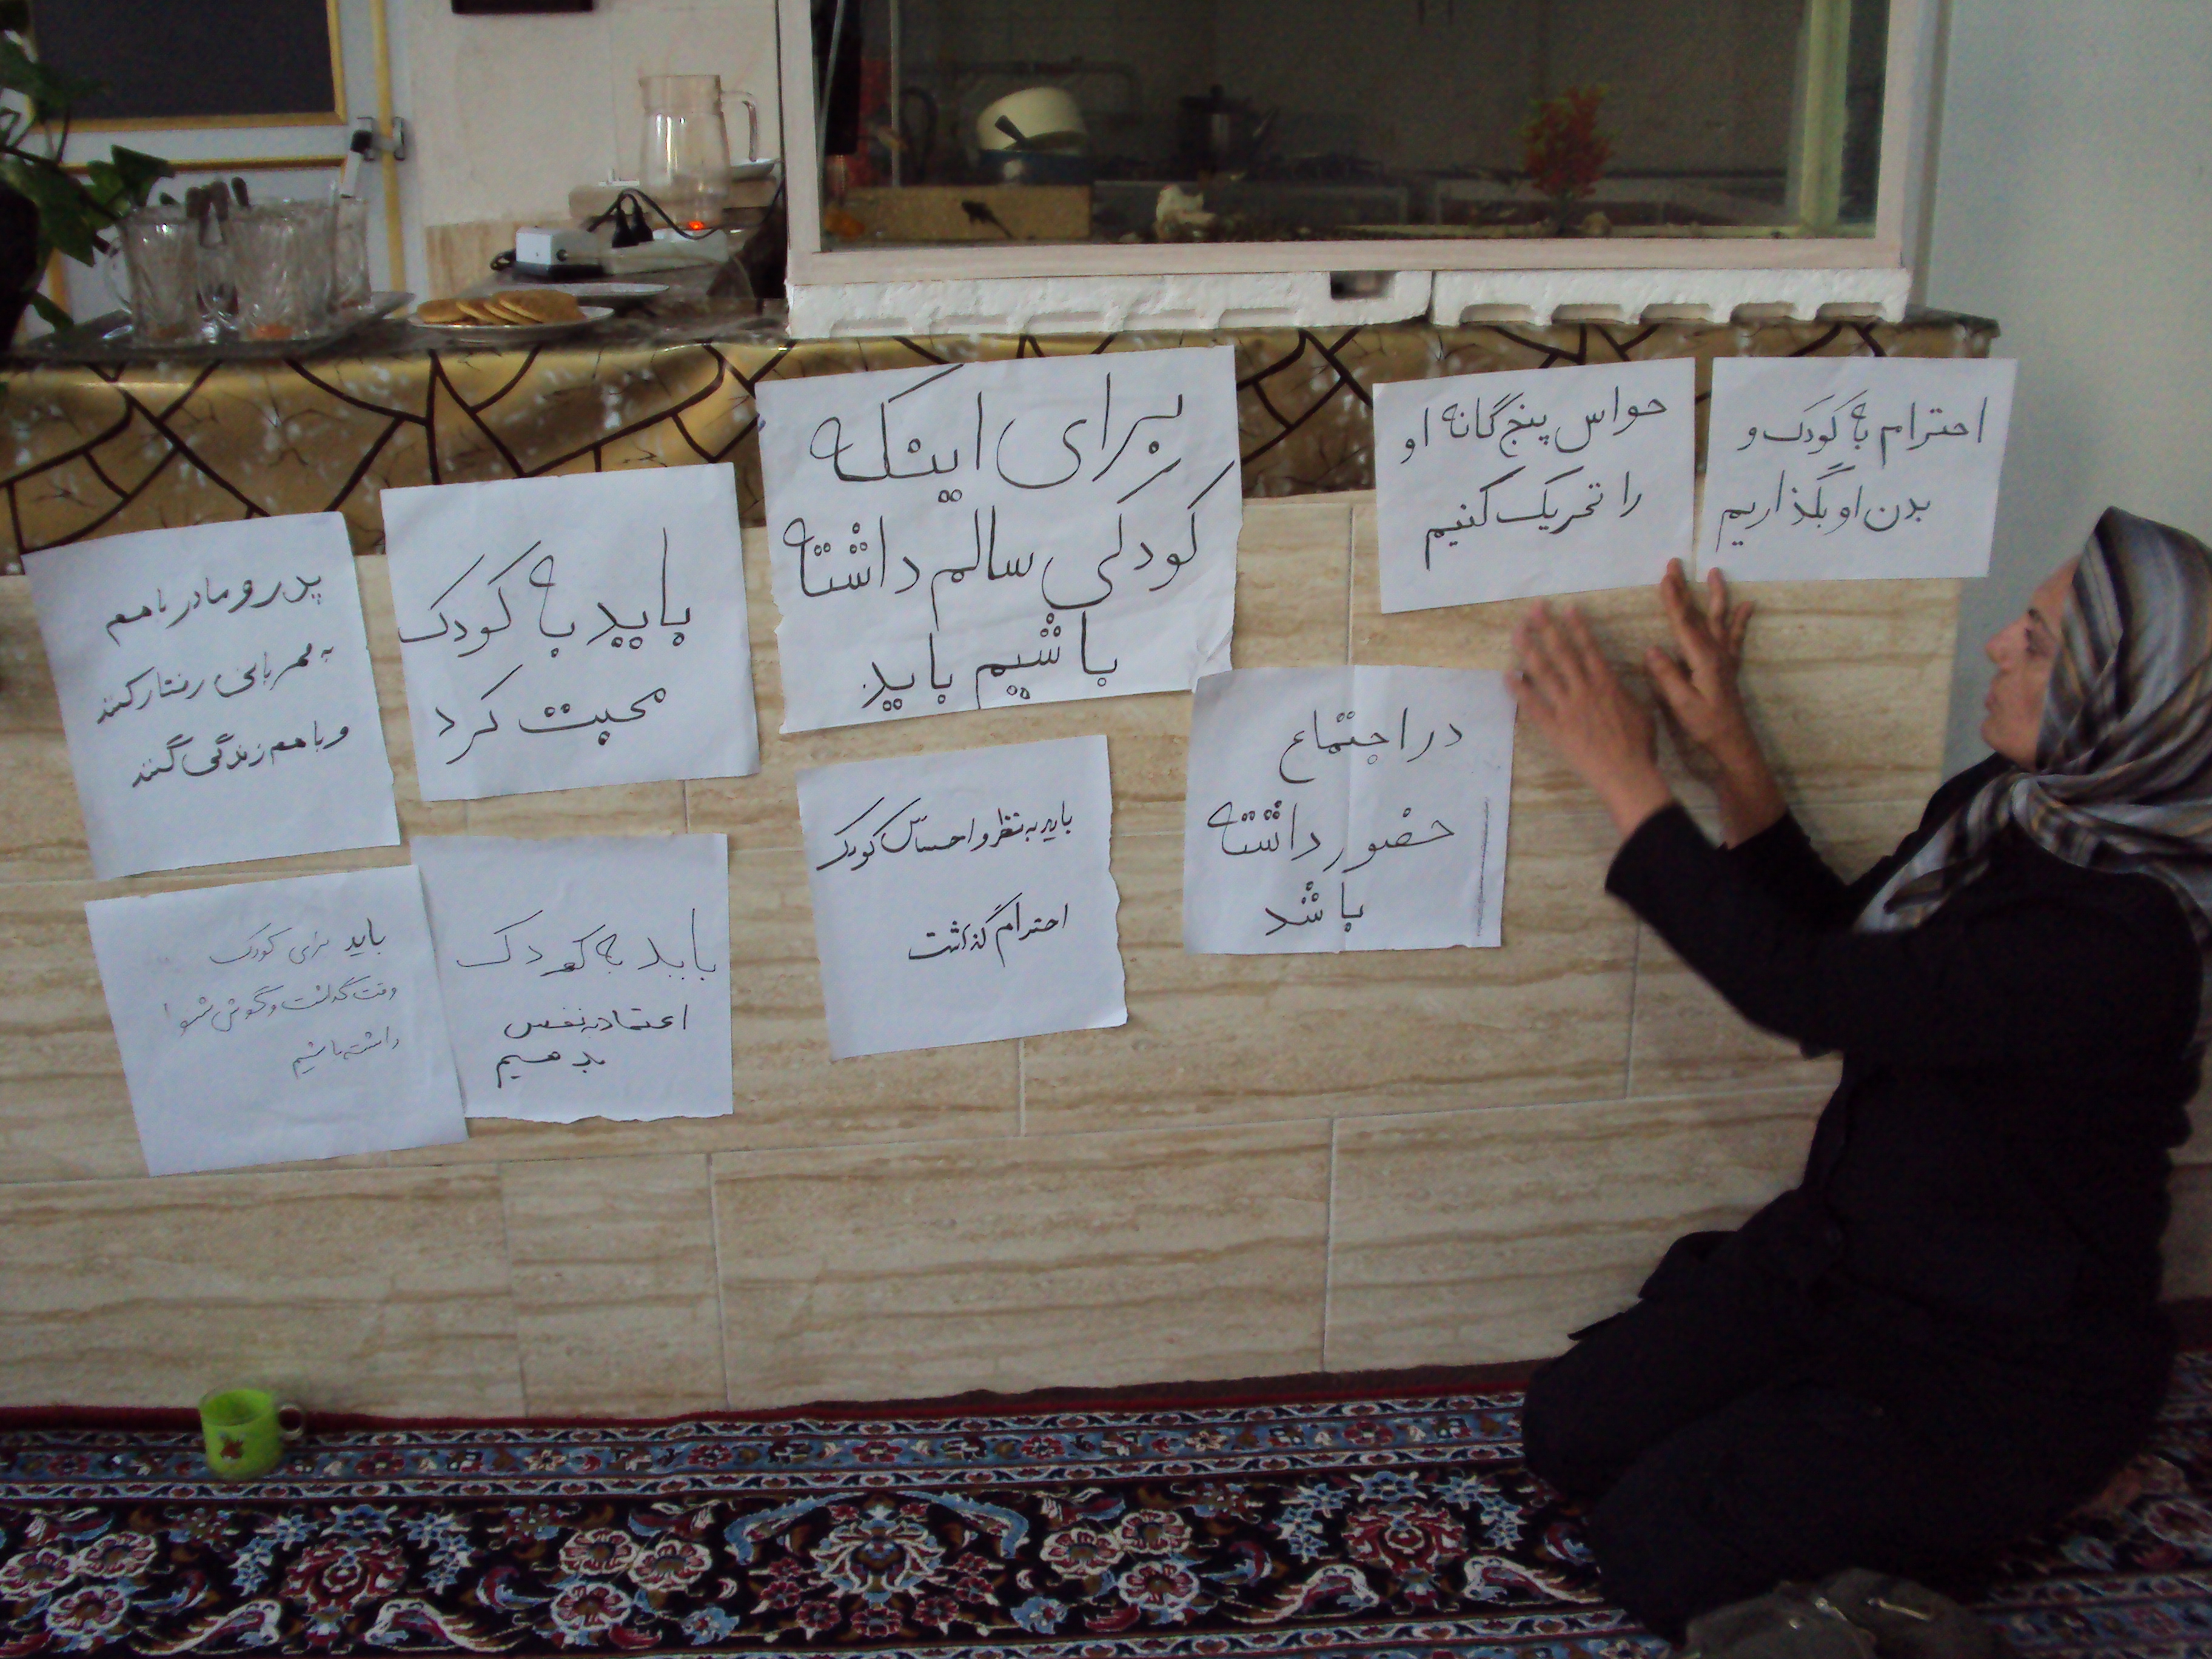 برای اینکه
کودکی سالم داشته
باشیم باید
احترام به کودک و
بدن او بگذاریم
حواس پنج گانه او
را تحریک کنیم
در اجتماع
حضور داشته
باشد
باید به نظر و احساس کودک
احترام گذاشت
باید به کودک
محبت کرد
باید به کودک
اعتماد به نفس
بدهیم
پدر و مادر باهم
به مهربانی رفتار کنند
و باهم زندگی کنند
باید برای کودک
وقت گذاشت و گوش شنوا
داشته باشیم